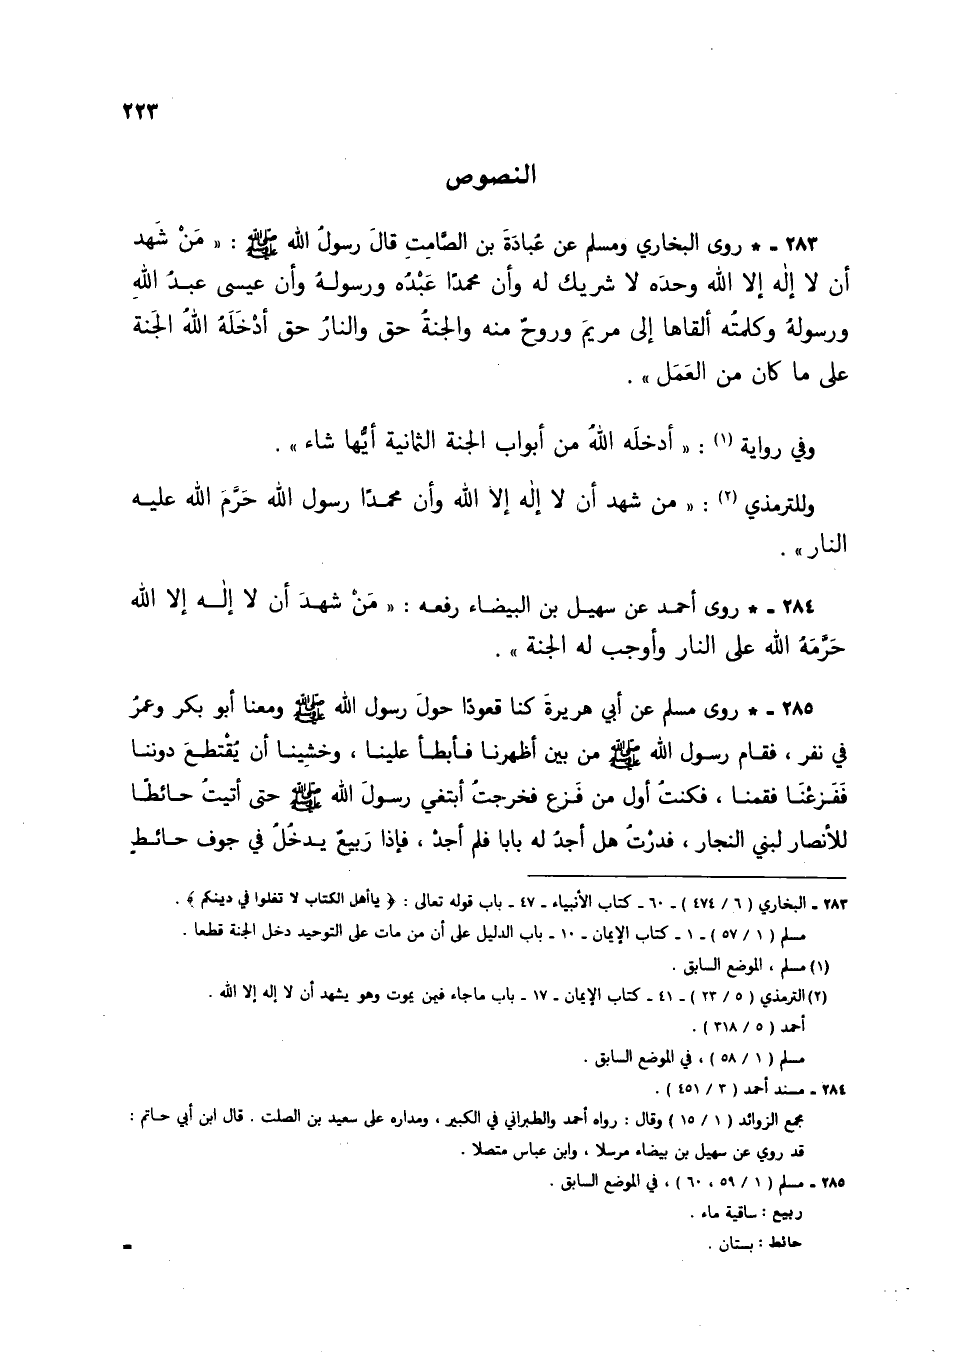 ٢٢٣
النصوص
٢٨٣ - * روى البخاري ومسلم عن عُبادَةَ بن الصَّامِتِ قالَ رسولُ الله ﷺ : « مَنْ شَهِدَ
أن لا إلٰه إلا الله وحدَه لا شريك له وأن محمدًا عَبْدُه ورسولهُ وأن عيسى عبدُ اللهِ
ورسولهُ وكلمتُه ألقاها إلى مريمَ وروحٌ منه والجنةُ حق والنارُ حق أدْخَلَهُ اللهُ الجنة
على ما كان من العَمَل » .
وفي رواية (١) : « أدخلَه اللهُ من أبواب الجنة الثمانية أيُّها شاء » .
وللترمذي (٢) : « من شهد أن لا إلٰه إلا الله وأن محمدًا رسول الله حَرَّمَ الله عليه
النار » .
٢٨٤ - * روى أحمد عن سهيل بن البيضاء رفعه : « مَنْ شهدَ أن لا إلٰه إلا الله
حَرَّمَهُ الله على النار وأوجب له الجنة » .
٢٨٥ - * روى مسلم عن أبي هريرةَ كنا قعودًا حولَ رسول الله ﷺ ومعنا أبو بكر وعمرُ
في نفر ، فقام رسول الله ﷺ من بين أظهرنا فأبطأ علينا ، وخشِينا أن يُقْتطعَ دوننا
فَفَزعْنَا فقمنا ، فكنتُ أول من فَزع فخرجتُ أبتغي رسولَ الله ﷺ حتى أتيتُ حائطًا
للأنصار لبني النجار ، فدرْتُ هل أجدُ له بابا فلم أجدْ ، فإذا رَبيعٌ يدخُلُ في جوف حائطٍ
٢٨٣ - البخاري ( ٦ / ٤٧٤ ) - ٦٠ - كتاب الأنبياء - ٤٧ - باب قوله تعالى : ﴿ ياأهل الكتاب لا تغلوا في دينكم ﴾ .
مسلم ( ١ / ٥٧ ) - ١ - كتاب الإيمان - ١٠ - باب الدليل على أن من مات على التوحيد دخل الجنة قطعا .
(١) مسلم ، الموضع السابق .
(٢) الترمذي ( ٥ / ٢٣ ) - ٤١ - كتاب الإيمان - ١٧ - باب ماجاء فيمن يموت وهو يشهد أن لا إله إلا الله .
أحمد ( ٥ / ٣١٨ ) .
مسلم ( ١ / ٥٨ ) ، في الموضع السابق .
٢٨٤ - مسند أحمد ( ٣ / ٤٥١ ) .
مجمع الزوائد ( ١ / ١٥ ) وقال : رواه أحمد والطبراني في الكبير ، ومداره على سعيد بن الصلت . قال ابن أبي حاتم :
قد روي عن سهيل بن بيضاء مرسلا ، وابن عباس متصلا .
٢٨٥ - مسلم ( ١ / ٥٩ ، ٦٠ ) ، في الموضع السابق .
ربيع : ساقية ماء .
حائط : بستان .